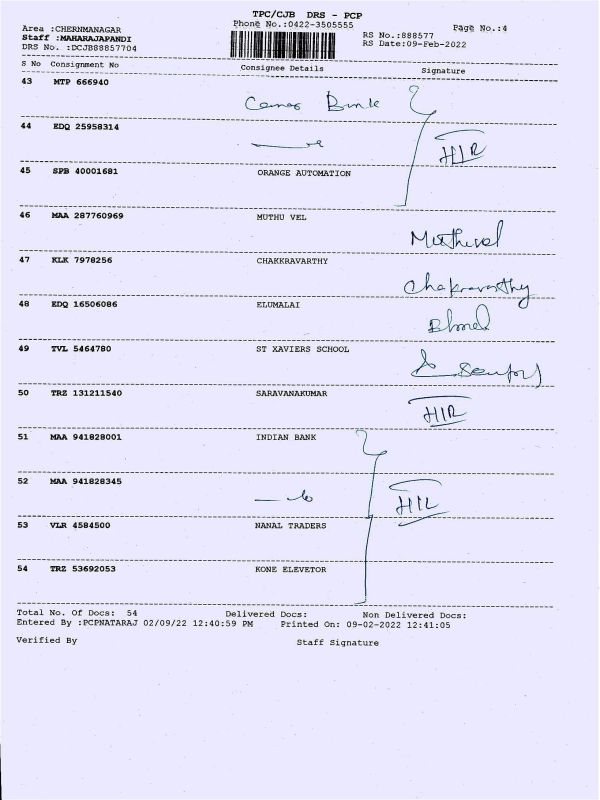 TPC/CJB DRS - PCP
Area :CHERNMANAGAR Phone No.:0422-3505555 Page No.:4
Staff :MAHARAJAPANDI RS No.:888577
DRS No. :DCJB88857704 RS Date:09-Feb-2022
S No Consignment No Consignee Details Signature
43 MTP 666940
44 EDQ 25958314
HIR
45 SPB 40001681 ORANGE AUTOMATION
46 MAA 287760969 MUTHU VEL
Muthuvel
47 KLK 7978256 CHAKKRAVARTHY
Chakravarthy
48 EDQ 16506086 ELUMALAI
49 TVL 5464780 ST XAVIERS SCHOOL
50 TRZ 131211540 SARAVANAKUMAR
HIR
51 MAA 941828001 INDIAN BANK
52 MAA 941828345
53 VLR 4584500 NANAL TRADERS
54 TRZ 53692053 KONE ELEVETOR
Total No. Of Docs: 54 Delivered Docs: Non Delivered Docs:
Entered By :PCPNATARAJ 02/09/22 12:40:59 PM Printed On: 09-02-2022 12:41:05
Verified By Staff Signature